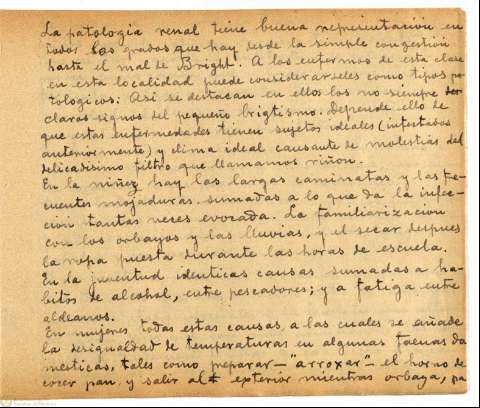 La patología renal tiene buena representación en
todos los grados que hay desde la simple congestión
hasta el mal de Bright. A los enfermos de esta clase
en esta localidad puede considerárseles como tipos pa
tologicos. Así se destacan en ellos los no siempre
claros signos del pequeño brigtismo. Depende ello de
que estas enfermedades tienen sujetos ideales (infestados
anteriormente) y clima ideal causante de molestias del
delicadísimo filtro que llamamos riñon.
En la niñez hay las largas caminatas y las fre-
cuentes mojaduras sumadas a lo que da la infec-
ción tantas veces evocada. La familiarización
con los orbayos y las lluvias, y el secar despues
la ropa puesta durante las horas de escuela.
En la juventud identicas causas sumadas a ha-
bitos de alcohol, entre pescadores; y a fatiga entre
aldeanos.
En mujeres todas estas causas a las cuales se añade
la desigualdad de temperaturas en algunas faenas do
mesticas, tales como preparar —"arroxar"— el horno de
cocer pan y salir al exterior mientras orbaya, pa